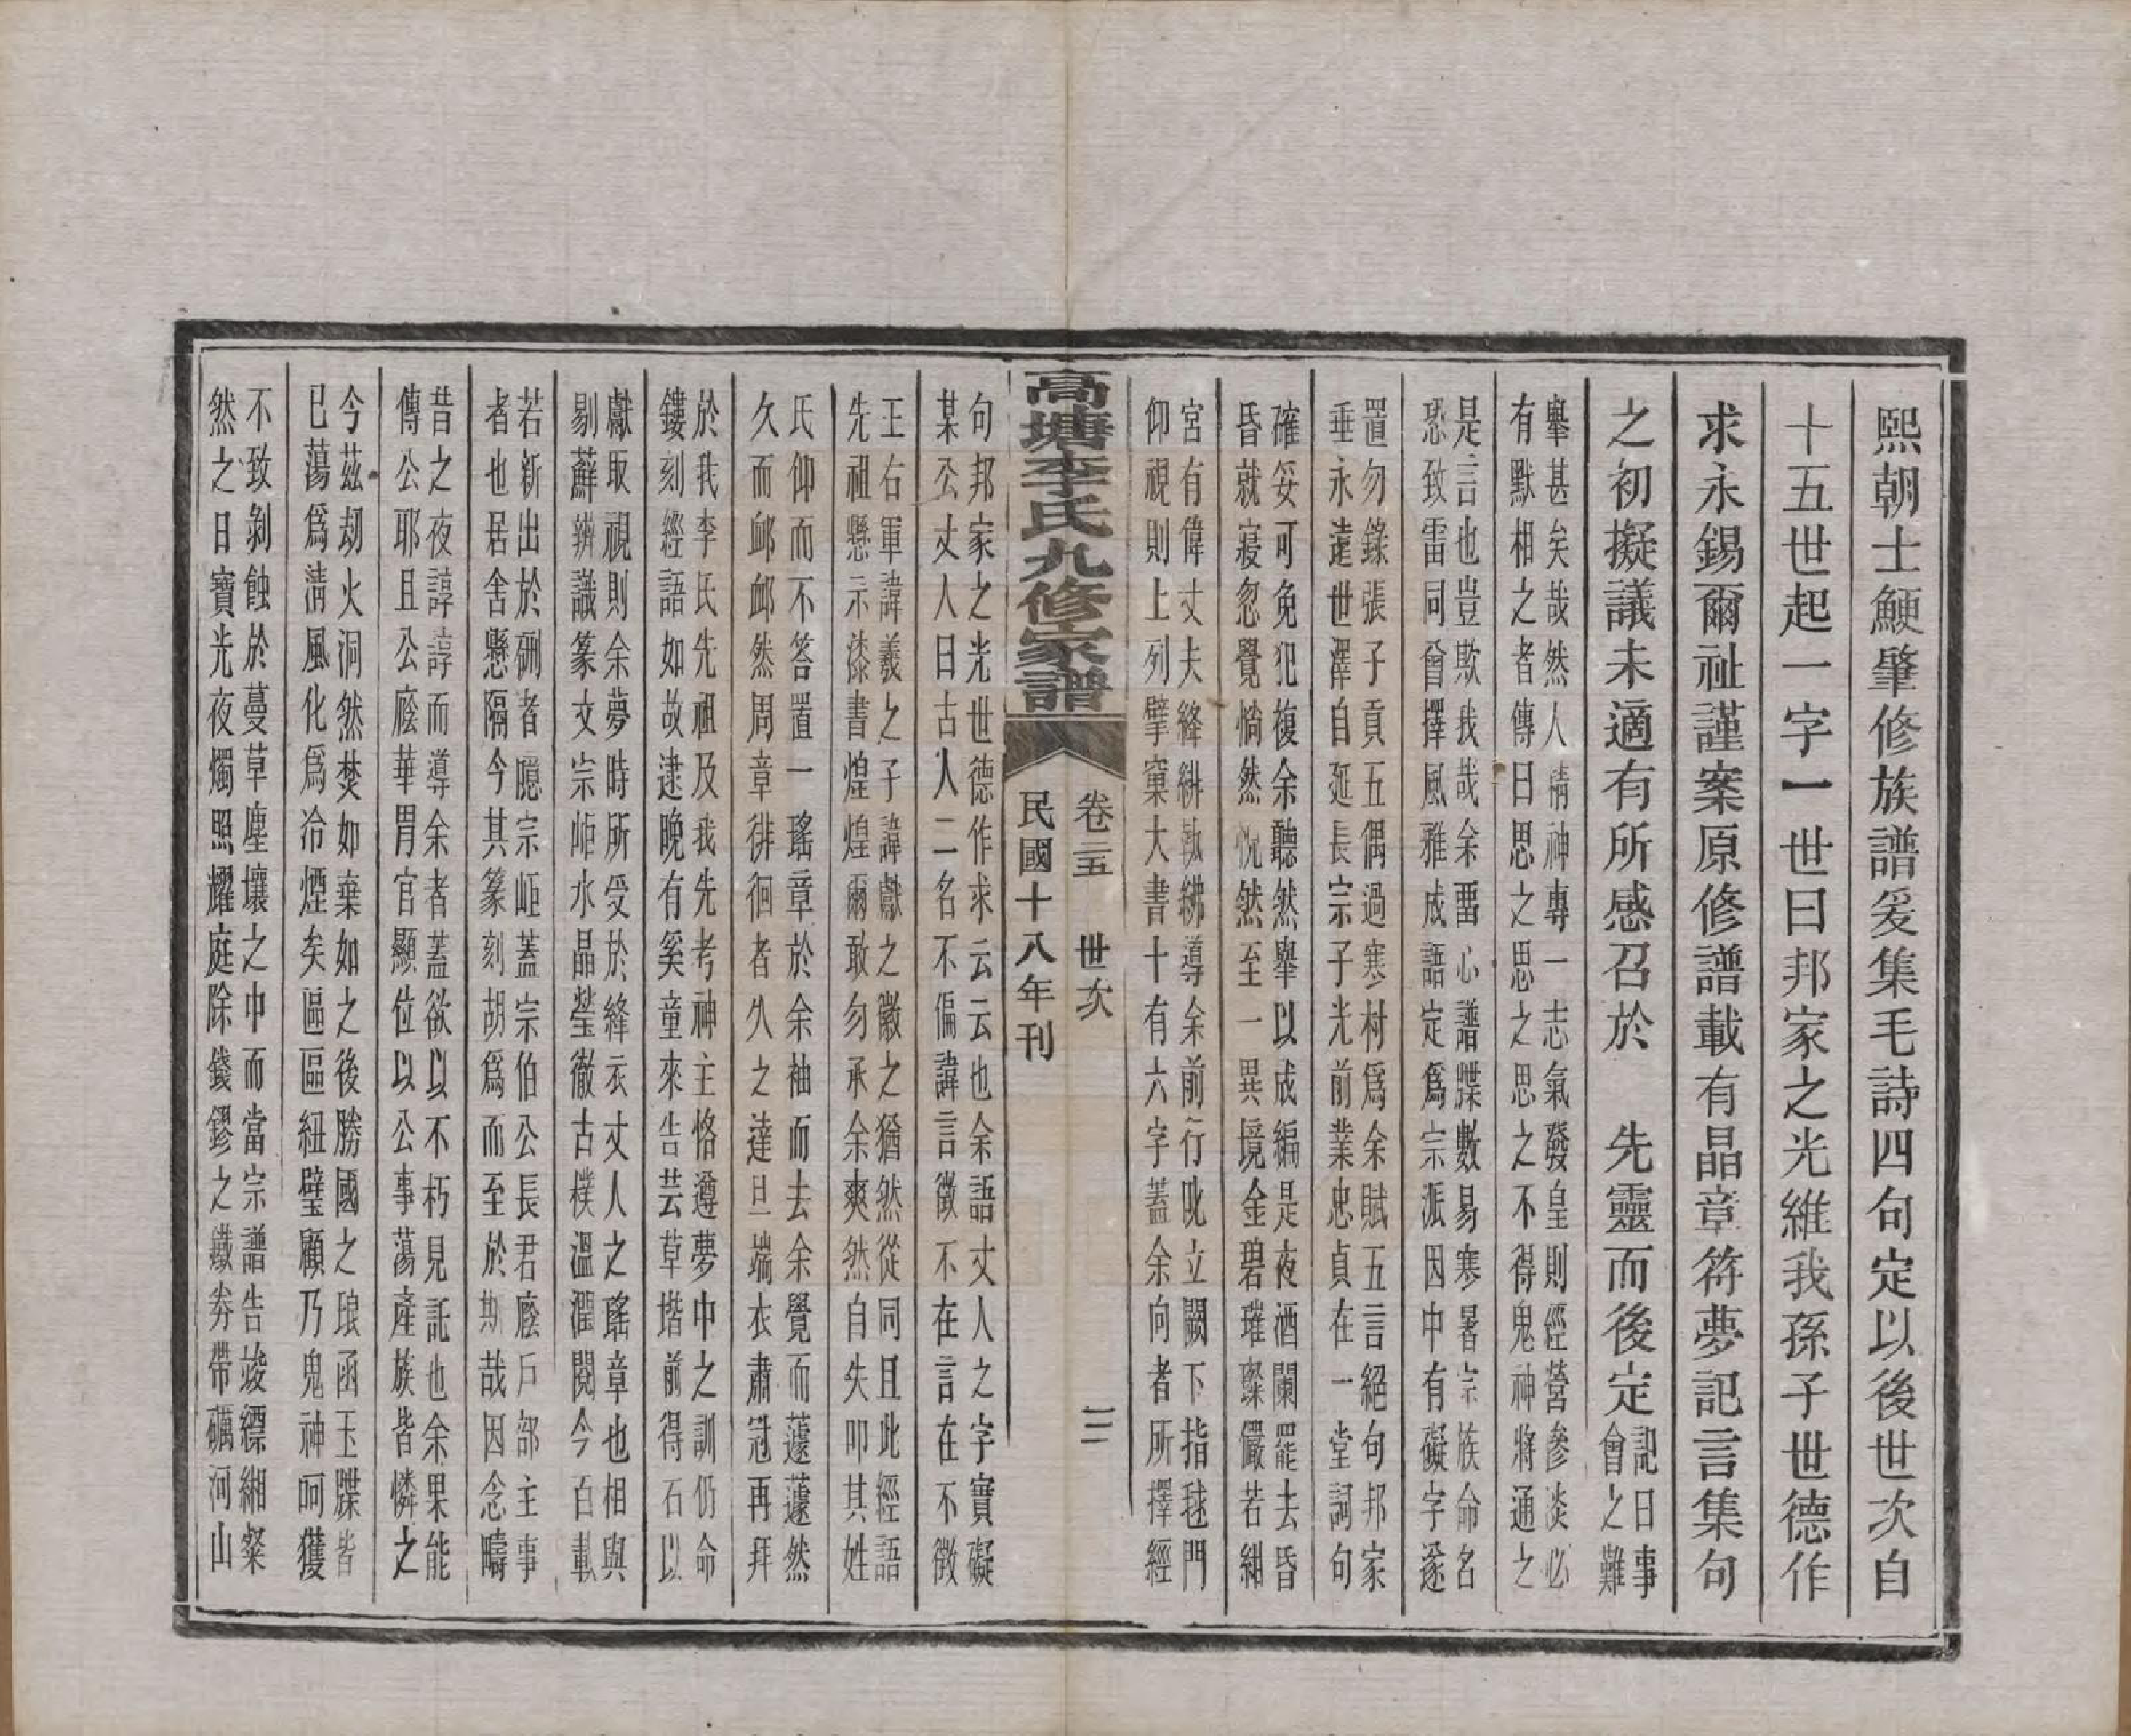 熙朝士鯁肇修族譜爰集毛詩四句定以後世次自
十五世起一字一世曰邦家之光維我孫子世德作
求永錫爾祉謹案原修譜載有晶章符夢記言集句
之初擬議未適有所感召於　先靈而後定
記曰事
會之難
舉甚矣哉然人情神專一志氣發皇則經營參淡必
有默相之者傳曰思之思之思之不得鬼神將通之
是言也豈欺我哉余畱心譜牒數易寒暑宗族命名
恐致雷同曾擇風雅成語定爲宗派因中有礙字遂
置勿錄張子貢五偶過寒村爲余賦五言絕句邦家
垂永遠世澤自延長宗子光前業忠貞在一堂詞句
確妥可免犯複余聽然舉以成編是夜酒闌罷去昏
昏就寢忽覺惝然怳然至一異境金碧璀璨儼若紺
宮有偉丈夫絳絣執紼導余前行叱立闕下指毬門
仰視則上列擘窠大書十有六字蓋余向者所擇經
高塘李氏九修家譜
卷二五　世次
三
民國十八年刊
句邦家之光世德作求云云也余語丈人之字實礙
某公丈人曰古人二名不偏諱言徵不在言在不徵
王右軍諱羲之子諱獻之徽之猶然從同且此經語
先祖懸示漆書煌煌爾敢勿承余爽然自失叩其姓
氏仰而不答置一瑤章於余袖而去余覺而蘧蘧然
久而邮邮然周章徘徊者久之達旦端衣肅冠再拜
於我李氏先祖及我先考神主恪遵夢中之訓仍命
鏤刻經語如故逮晚有奚童來告芸草堦前得石以
獻取視則余夢時所受於絳衣丈人之瑤章也相與
剔蘚辨識篆文宗岠水晶瑩徹古樸溫潤閱今百載
若新出於硎者臆宗岠蓋宗伯公長君廕戶部主事
者也居舍懸隔今其篆刻胡爲而至於斯哉因念疇
昔之夜諄諄而導余者蓋欲以不朽見託也余果能
傳公耶且公廕華胃官顯位以公事蕩產族皆憐之
今茲刧火洞然焚如棄如之後勝國之琅函玉牒皆
已蕩爲淸風化爲冷煙矣區區紐璧顧乃鬼神呵獲
不致剝蝕於蔓草塵壤之中而當宗譜告竣縹緗粲
然之日寶光夜燭照耀庭除錢鏐之鐵券帶礪河山